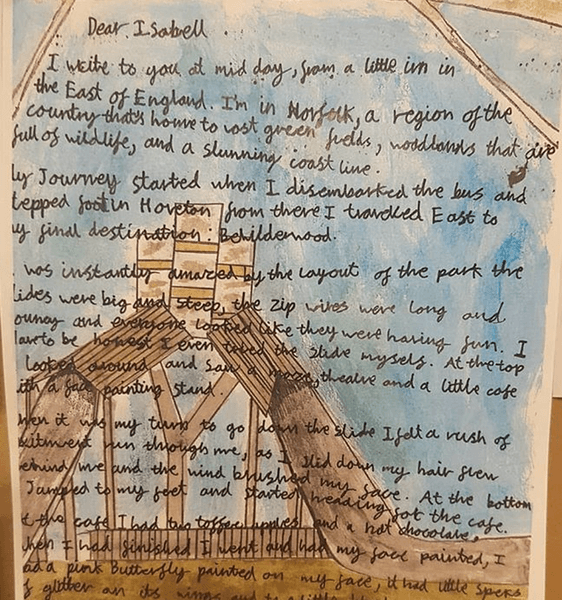 Dear Isabell
I write to you at mid day, from a little inn in
the East of England. I'm in Norfolk, a region of the
country that's home to vast green fields, woodlands that are
full of wildlife, and a stunning coast line.
ly Journey started when I disembarked the bus and
tepped foot in Hoveton from there I travelled East to
y final destination: Bewilderwood.
was instantly amazed by the layout of the park the
lides were big and steep, the zip wires were long and
bouncy and everyone looked like they were having fun. I
have to be honest I even tried the slide myself. At the top
looked around and saw a maze, theatre and a little cafe
ith a face painting stand.
hen it was my turn to go down the slide I felt a rush of
xcitment run through me, as I slid down my hair flew
ehind me and the wind brushed my face. At the bottom
Jumped to my feet and started heading for the cafe.
t the cafe I had two toffee apples and a hot chocolate,
hen I had finished I went and had my face painted, I
ad a pink butterfly painted on my face, it had little specs
f glitter on its wings and